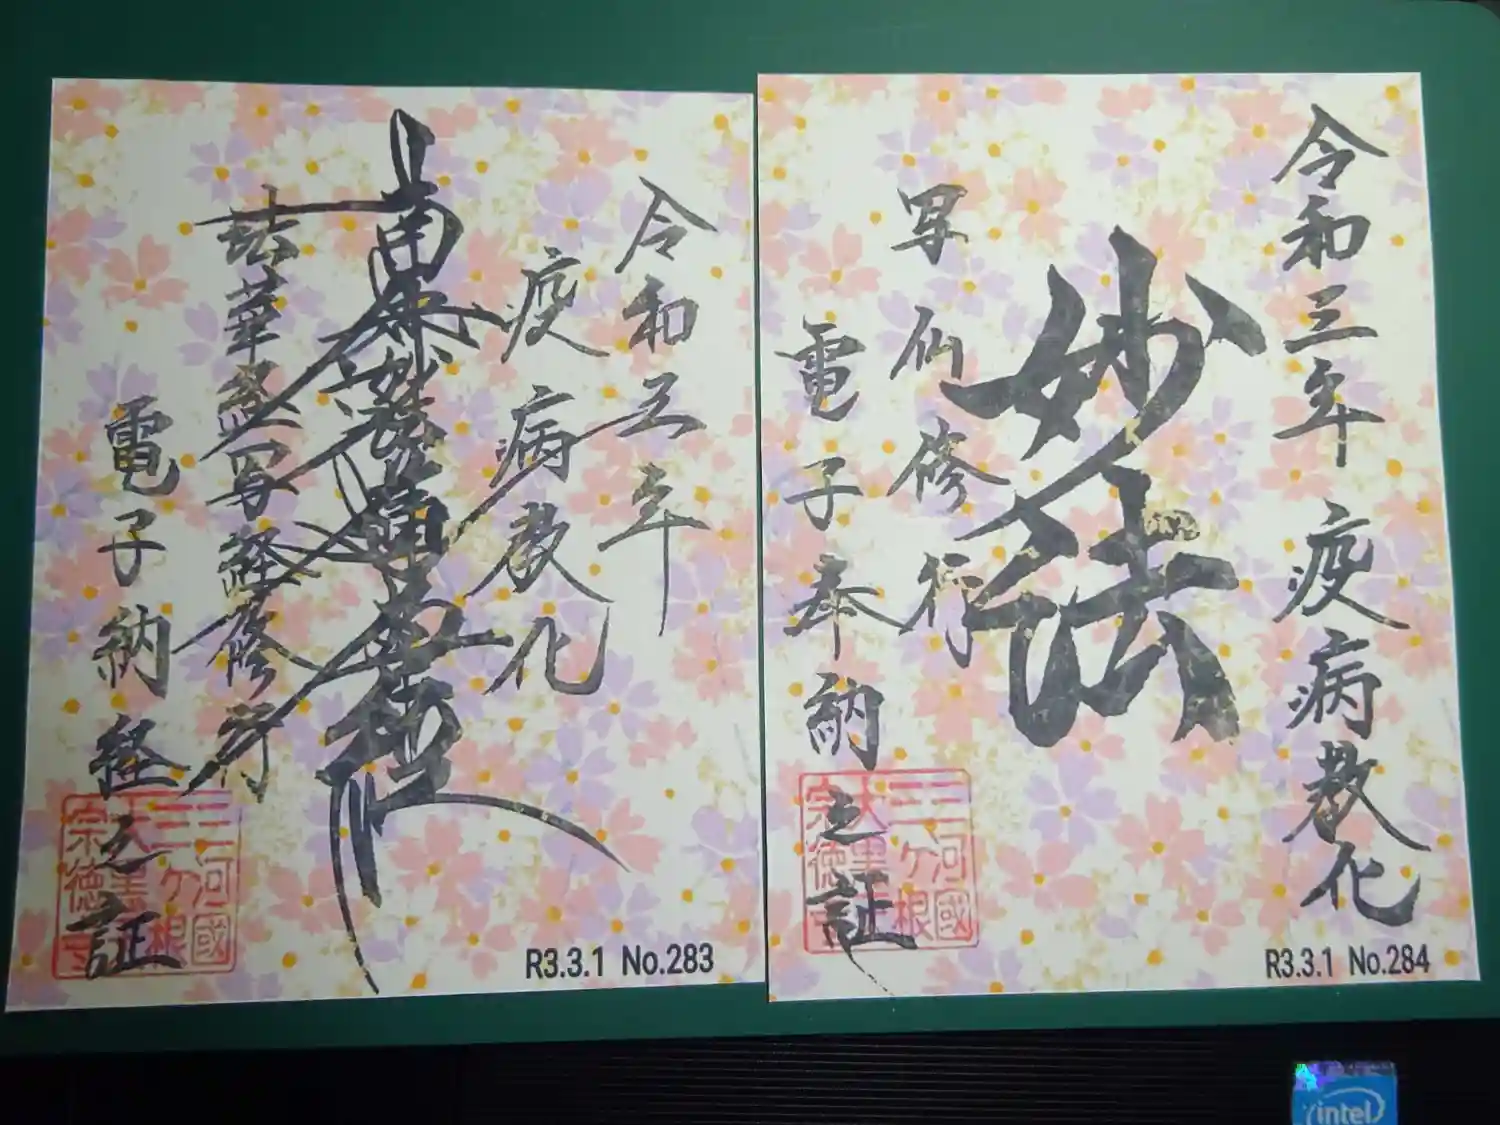 令和三年
疫病教化
南無妙法蓮華経
法華盛写経修行
電子納経之証
三河國
三ヶ根
宗徳寺
R3.3.1 No.283
令和三年 疫病教化
妙法
写仏修行
電子奉納之証
三河國
三ヶ根
宗徳寺
R3.3.1 No.284
intel